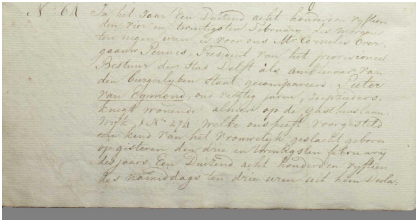 N° 64 In het Jaar Een Duizend acht honderden vijftien
den vier en twintigsten Februarij des morgens
ten negen uuren is voor ons Mr Cornelis Over
gaauw Pennis, President van het provisioneel
Bestuur der Stad Delft als ambtenaar van
den burgerlijken Staat gecompareerd Pieter
van Egmond, oud vijftig jaren,
knegt wonende alhier op de
Wijk, N° 274 welke ons heeft voorgesteld
een kind van het vrouwelijk geslacht geboren
op gisteren den drie en twintigsten februarij
dezes jaars Een Duizend acht honderden vijftien
des namiddags ten drie uren uit hem